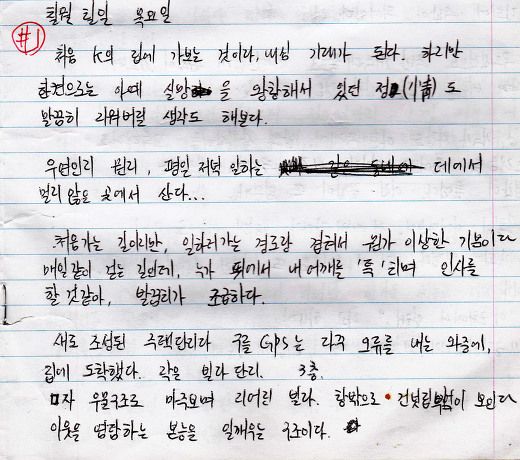 칠월 칠일 목요일
#1
처음 K의 집에 가보는 것이다, 내심 기대가 된다. 하지만
한편으로는 아예 실망을 왕창해서 있던 정(情)도
말끔히 지워버릴 생각도 해본다.
우연인지 뭔지, 평일 저녁 일하는 데에서
멀지 않은 곳에서 산다...
처음가는 길이지만, 일하러가는 경로랑 겹쳐서 뭔가 이상한 기분이다
매일같이 걷는 길인데, 누가 뒤에서 내 어깨를 '툭' 치며 인사를
할 것같아, 발꿈치가 조급하다.
새로 조성된 주택단지라 구글 GPS는 자꾸 오류를 내는 와중에,
집에 도착했다. 작은 빌라 단지. 3층.
ㅁ자 우물구조로 마주보며 지어진 빌라. 창밖으로 건넛집 이 보인다
이웃을 염탐하는 본능을 일깨우는 구조이다.